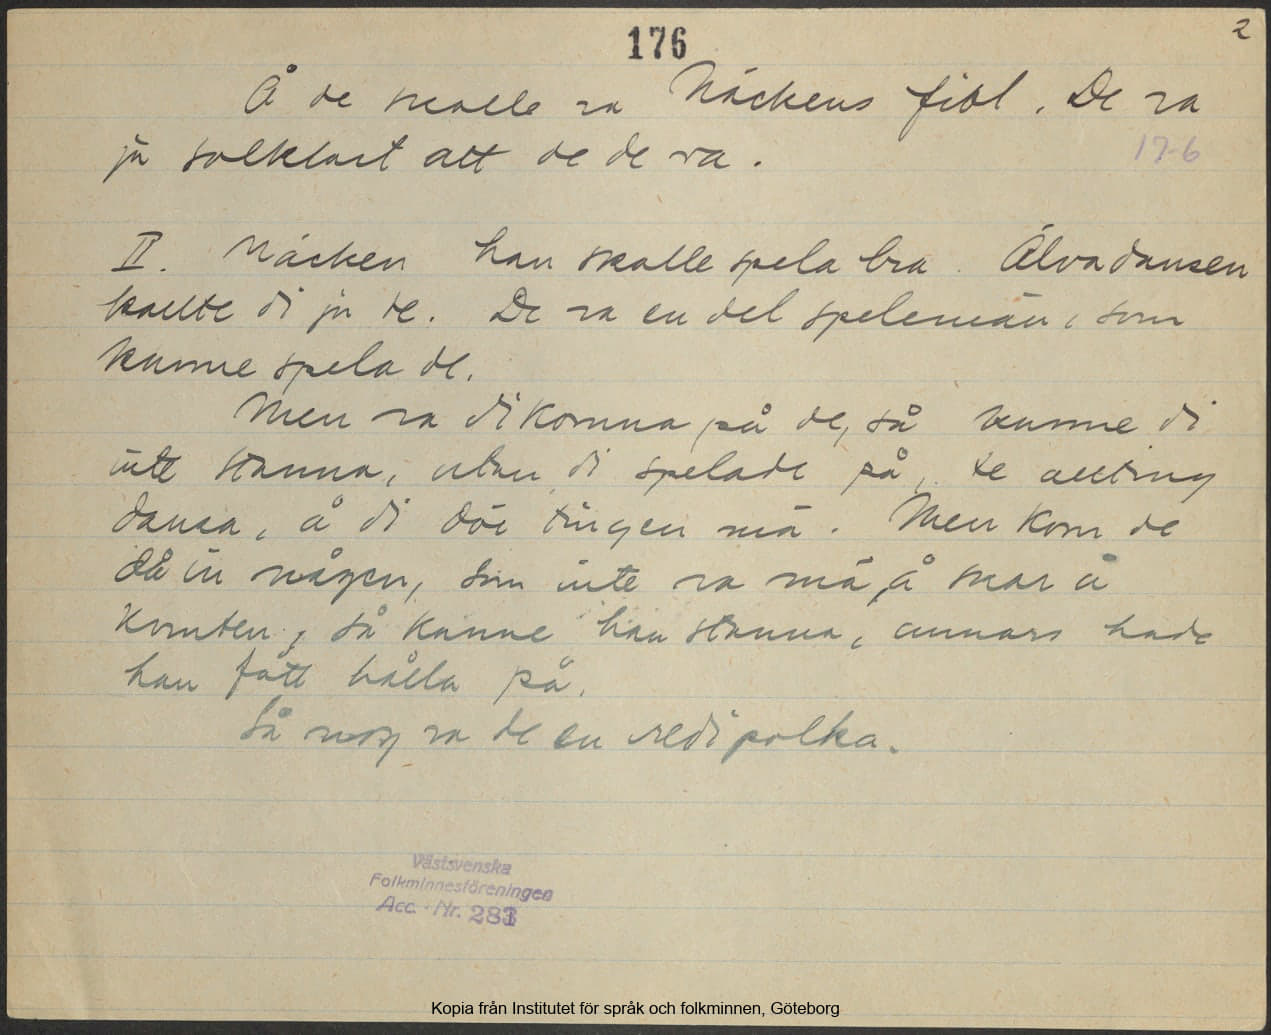 176
2
Å de skolle va Näckens fiol. De va
ju solklart att de de va.
17-6
II. Näcken han skolle spela bra. Älvadansen
kallte di ju de. De va en del spelemän, som
kunne spela de.
Men va di komna på de, så kunne di
inte stanna, utan di spelade på, te allting
dansa, å di döe tingen mä. Men kom de
då in någen, som inte va mä, å skar å
, så kunne han stanna, annars hade
han fått hålla på.
Så nog va de en redi polka.
Västsvenska
Folkminnesföreningen
Acc. Nr. 283
Kopia från Institutet för språk och folkminnen, Göteborg